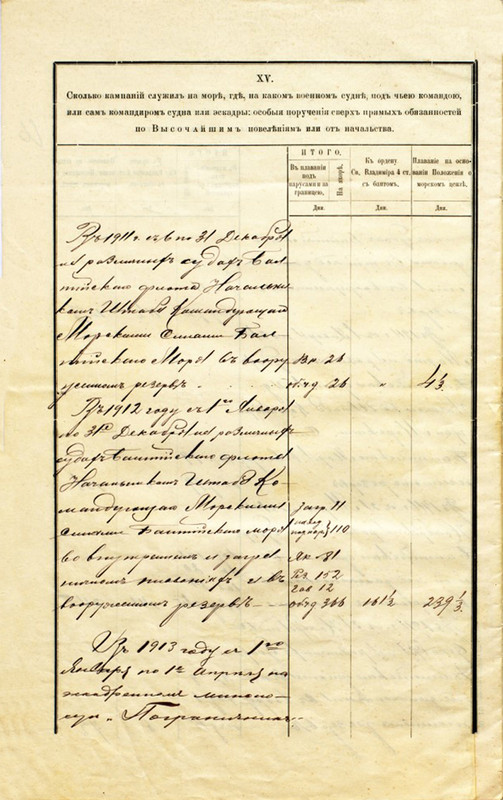 XV.
Сколько кампаній служилъ на морѣ, гдѣ, на какомъ военномъ суднѣ, подъ чьею командою,
или самъ командиромъ судна или эскадры: особыя порученія сверхъ прямыхъ обязанностей
по Высочайшимъ повелѣніямъ или отъ начальства.
ИТОГО.
Въ плаваніи подъ парусами и за границею,
На якорѣ.
Къ ордену Св. Владиміра 4 ст. съ бантомъ.
Плаваніе на основаніи Положенія о морскомъ цензѣ.
Дни.
Дни.
Дни.
Въ 1911 г. съ 6 по 31 Декабря
на различныхъ судахъ Бал-
тійскаго флота Начальни-
комъ Штаба Командующаго
Морскими Силами Бал-
тійскаго Моря въ воору-
женномъ резервѣ . . .
Вн. 26
общ 26
"
4⅓.
Въ 1912 году съ 1го Января
по 31е Декабря на различныхъ
судахъ Балтійскаго флота
Начальникомъ Штаба Ко-
мандующаго Морскими
Силами Балтійскаго моря
во внутреннемъ и загра-
ничномъ плаваніяхъ и въ
вооруженномъ резервѣ
загр 11
110
Як 81
Рез. 152
12
общ 366
161½
239⅓.
Въ 1913 году съ 1го
Января по 1е Апрѣля на
эскадренномъ минонос-
цѣ „Пограничникъ